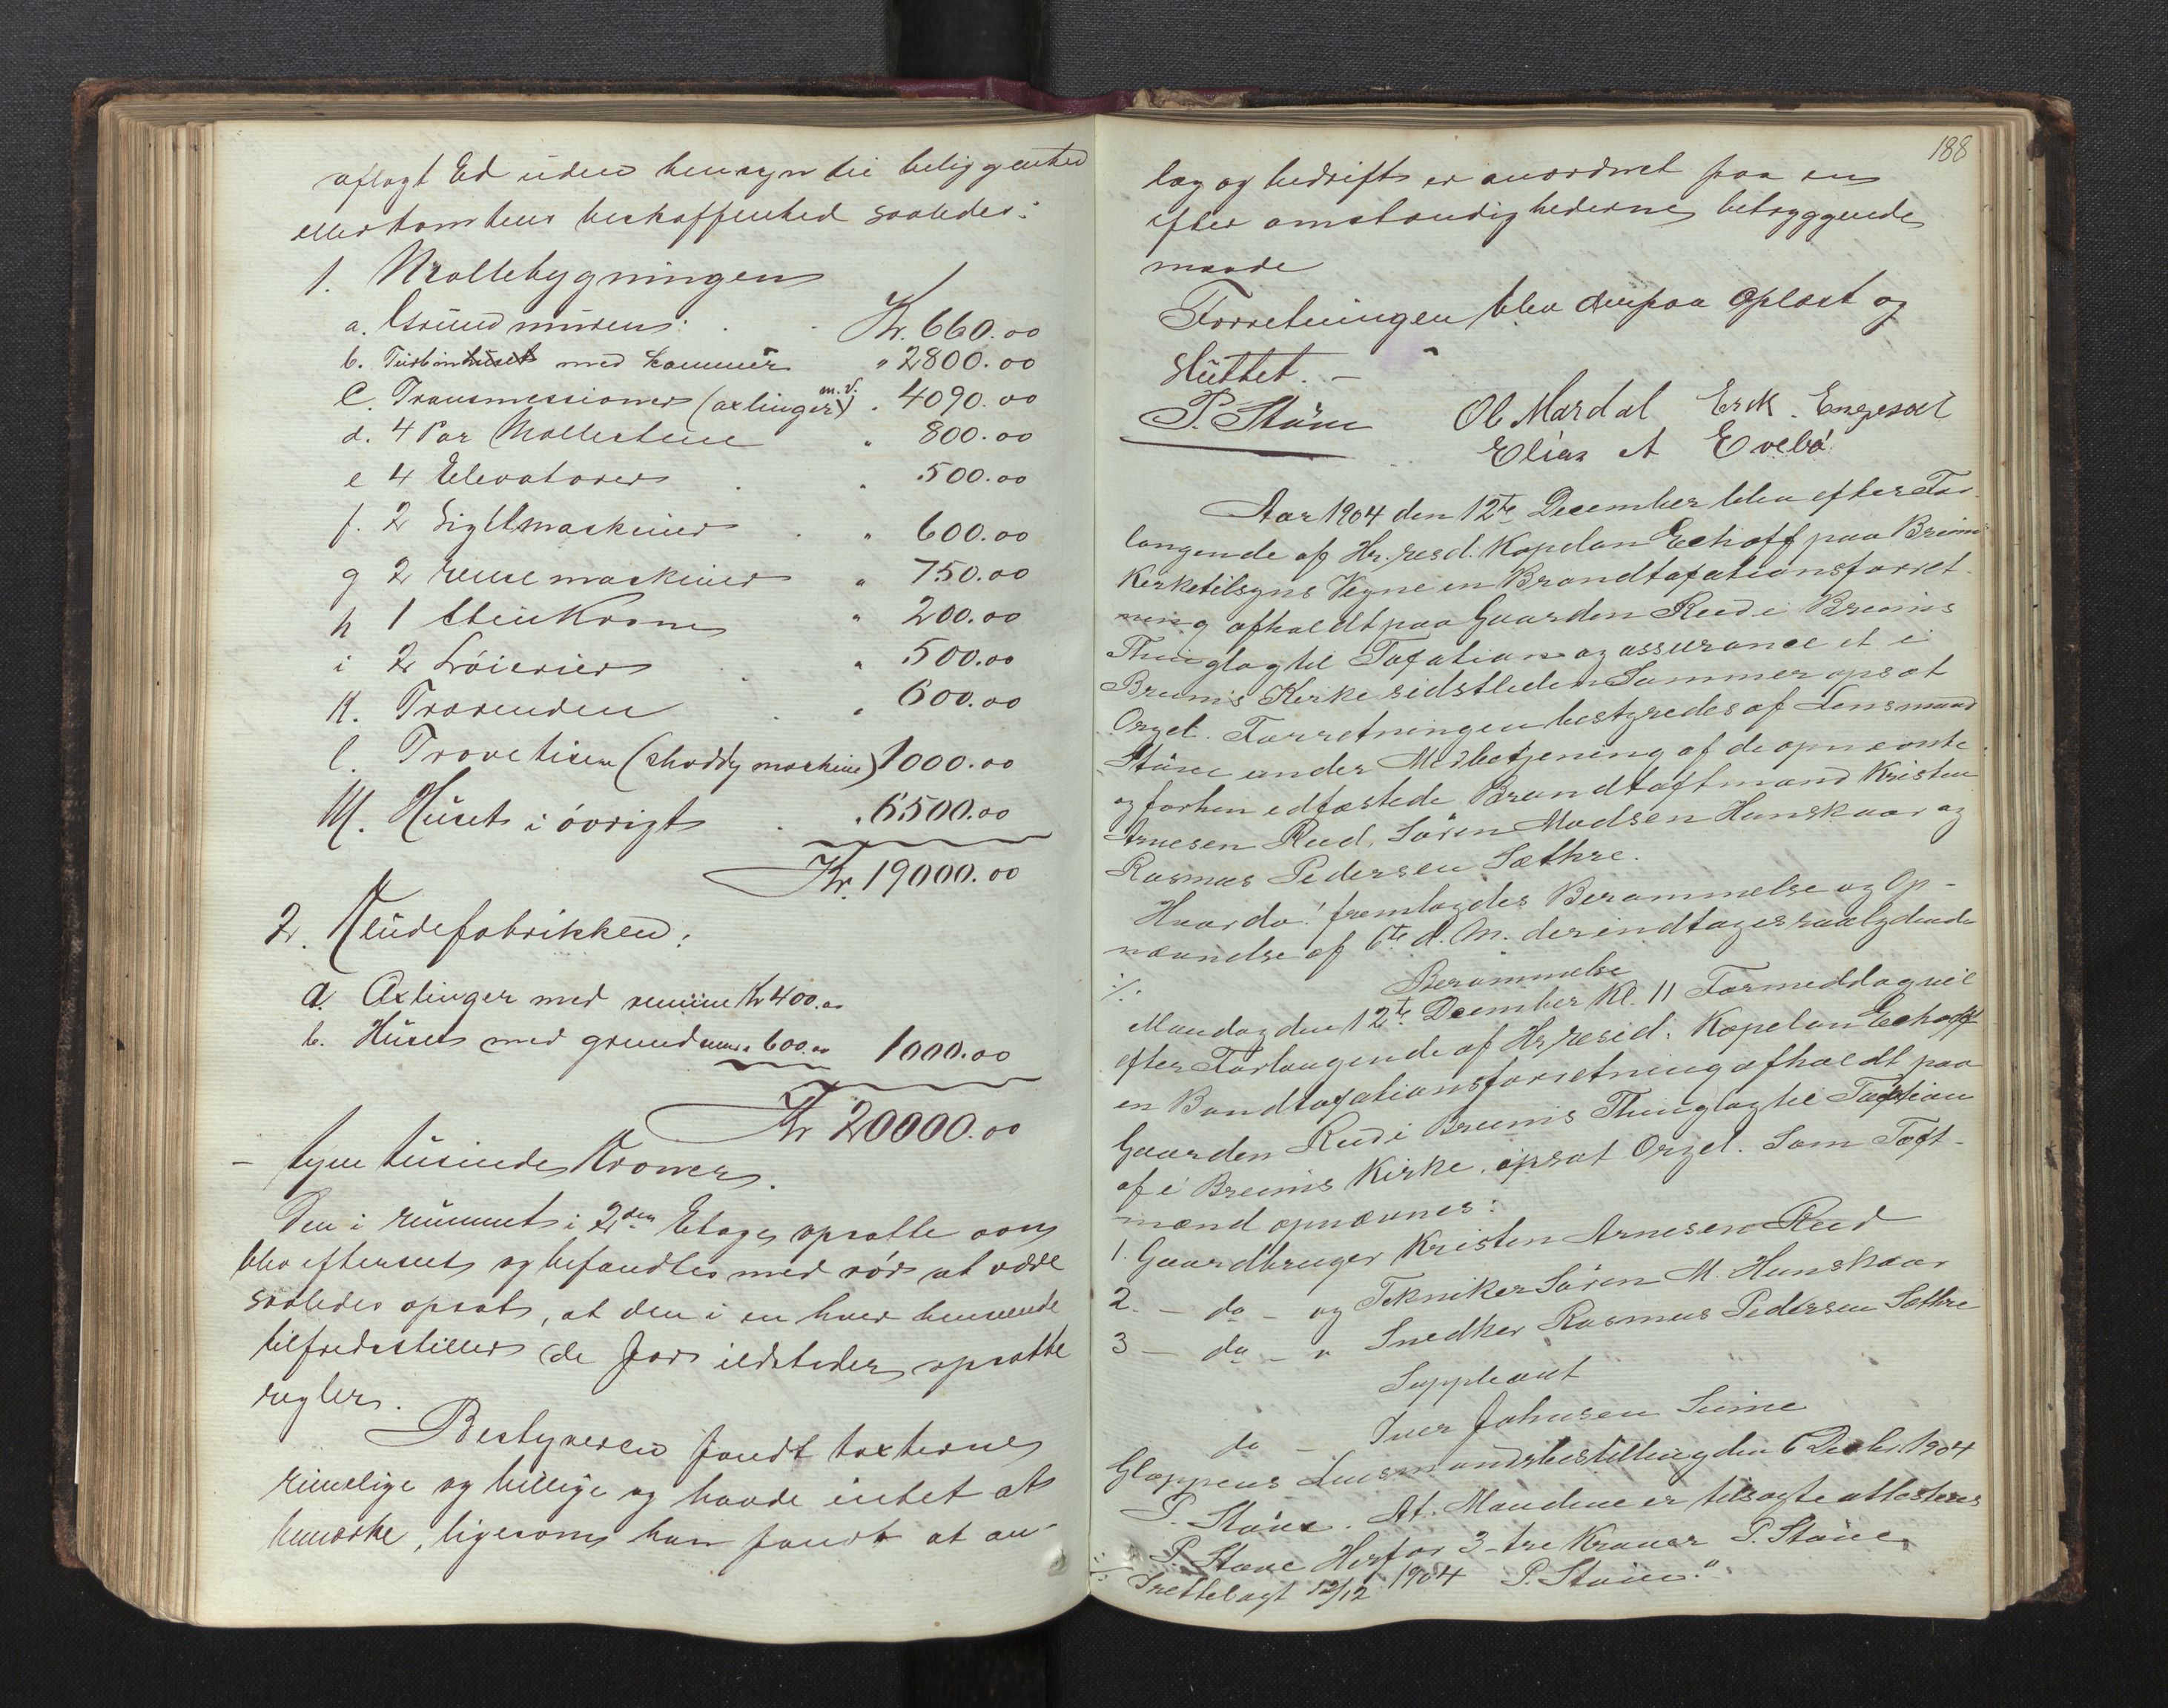 aflagt Ed uden hensyn til beliggenhed
eller tomtens beskaffenhed saaledes:
1. Møllebygningen
a. Grundmuren: Kr. 660.00
b. Turbinhuset med kammer " 2800.00
C. Transmissioner (axlinger m.v.) " 4090.00
d. 4 Par Møllestene " 800.00
e 4 Elevatorer " 500.00
f. 2 Sigtmaskiner " 600.00
g 2 rensemaskiner " 750.00
h 1 Stenkran " 200.00
i 2 Løierier " 500.00
k. Trærenden " 600.00
l. Trovetisen (shoddy maskine) 1000.00
M. Huset i øvrigt " 6500.00
Kr. 19000.00
2. Kludefabrikken:
a Axlinger med remme Kr 400.00
b. Huset med grundmur " 600.00 1000.00
Kr 20000.00
– tyve tusinde Kroner.
Den i rummet i 2den Etage opsatte ovn
blev efterseet og befandtes med rør at være
saaledes opsat, at den i en hver henseende
tilfredsstiller de for ildsteder opsatte
regler.
Bestyreren fandt taxterne
rimelige og billige og havde intet at
bemærke, ligesom han fandt at an-
188
læg og bedrift er anordnet paa en
efter omstændighederne betryggende
maade
Forretningen blev derpaa oplæst og
sluttet. –
P. Støve Ol Mardal Erik. Engesæt
Elias A Evebø
Aar 1904 den 12te December blev efter For-
langende af Hr. resd. Kapelan Eckhoff paa Breim
Kirketilsyns Vegne en Brandtaxationsforret-
ning afholdt paa Gaarden Reed i Breims
Thinglag til Taxation og assurance et i
Breims Kirke sidstleden Sommer opsat
Orgel. Forretningen bestyredes af Lensmand
Støve under Medbetjening af de opnævnte
og forhen edfæstede Brandtaxtmænd Kristen
Arnesen Reed, Søren Madsen Hunskaar og
Rasmus Pedersen Sæthre.
Hvorda: fremlagdes Berammelse og Op-
nævnelse af 6te d. M. der indtages saalydende
·/. Berammelse
Mandag den 12te December Kl. 11 Formeddag vil
efter Forlangende af Hr. resid. Kapelan Eckhoff
en Bandtaxationsforretning afholdt paa
Gaarden Reed i Breims Thinglag til Taxtion
af i Breims Kirke, opsat Orgel. Som Taxt-
mænd opnævnes:
1. Gaardbruger Kristen Arnesen Reed
2. – do – og Tekniker Søren M. Hunskaar
3 – do – " Snedker Rasmus Pedersen Sæthre
Suppleant
do – Iver Johnsen Seime
Gloppens Lensmandsbestilling den 6 Decbr. 1904
P. Støve. At Mændene er tilsagte attesteres
P. Støve Herfor 3 – tre Kroner P. Støve
·/. Fremlagt 12/12 1904 P. Støve."